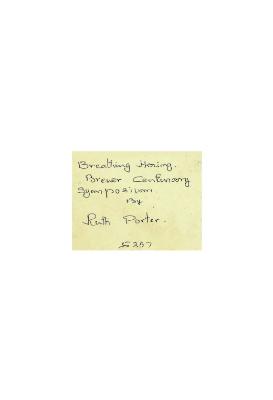 Breathing Hering.
Breuer Centenary
Symposium
By
Ruth Porter.
5287